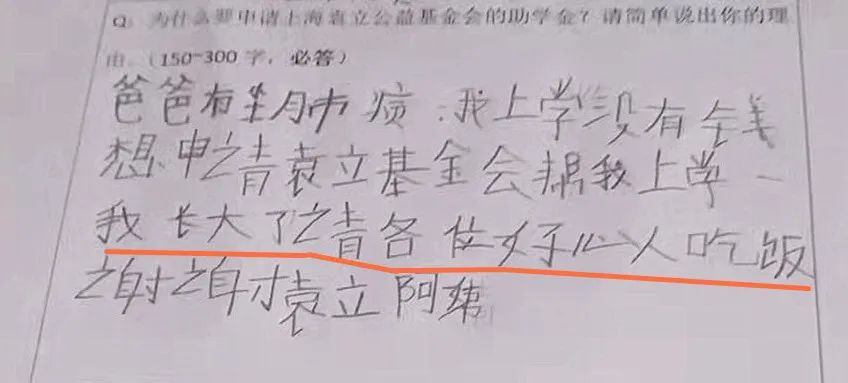 Q: 为什么要申请上海袁立公益基金会的助学金？请简单说出你的理
由.（150-300 字，必答）
爸爸有尘肺病.我上学没有钱
想申请袁立基金会帮我上学
我长大了请各位好心人吃饭
谢谢袁立阿姨